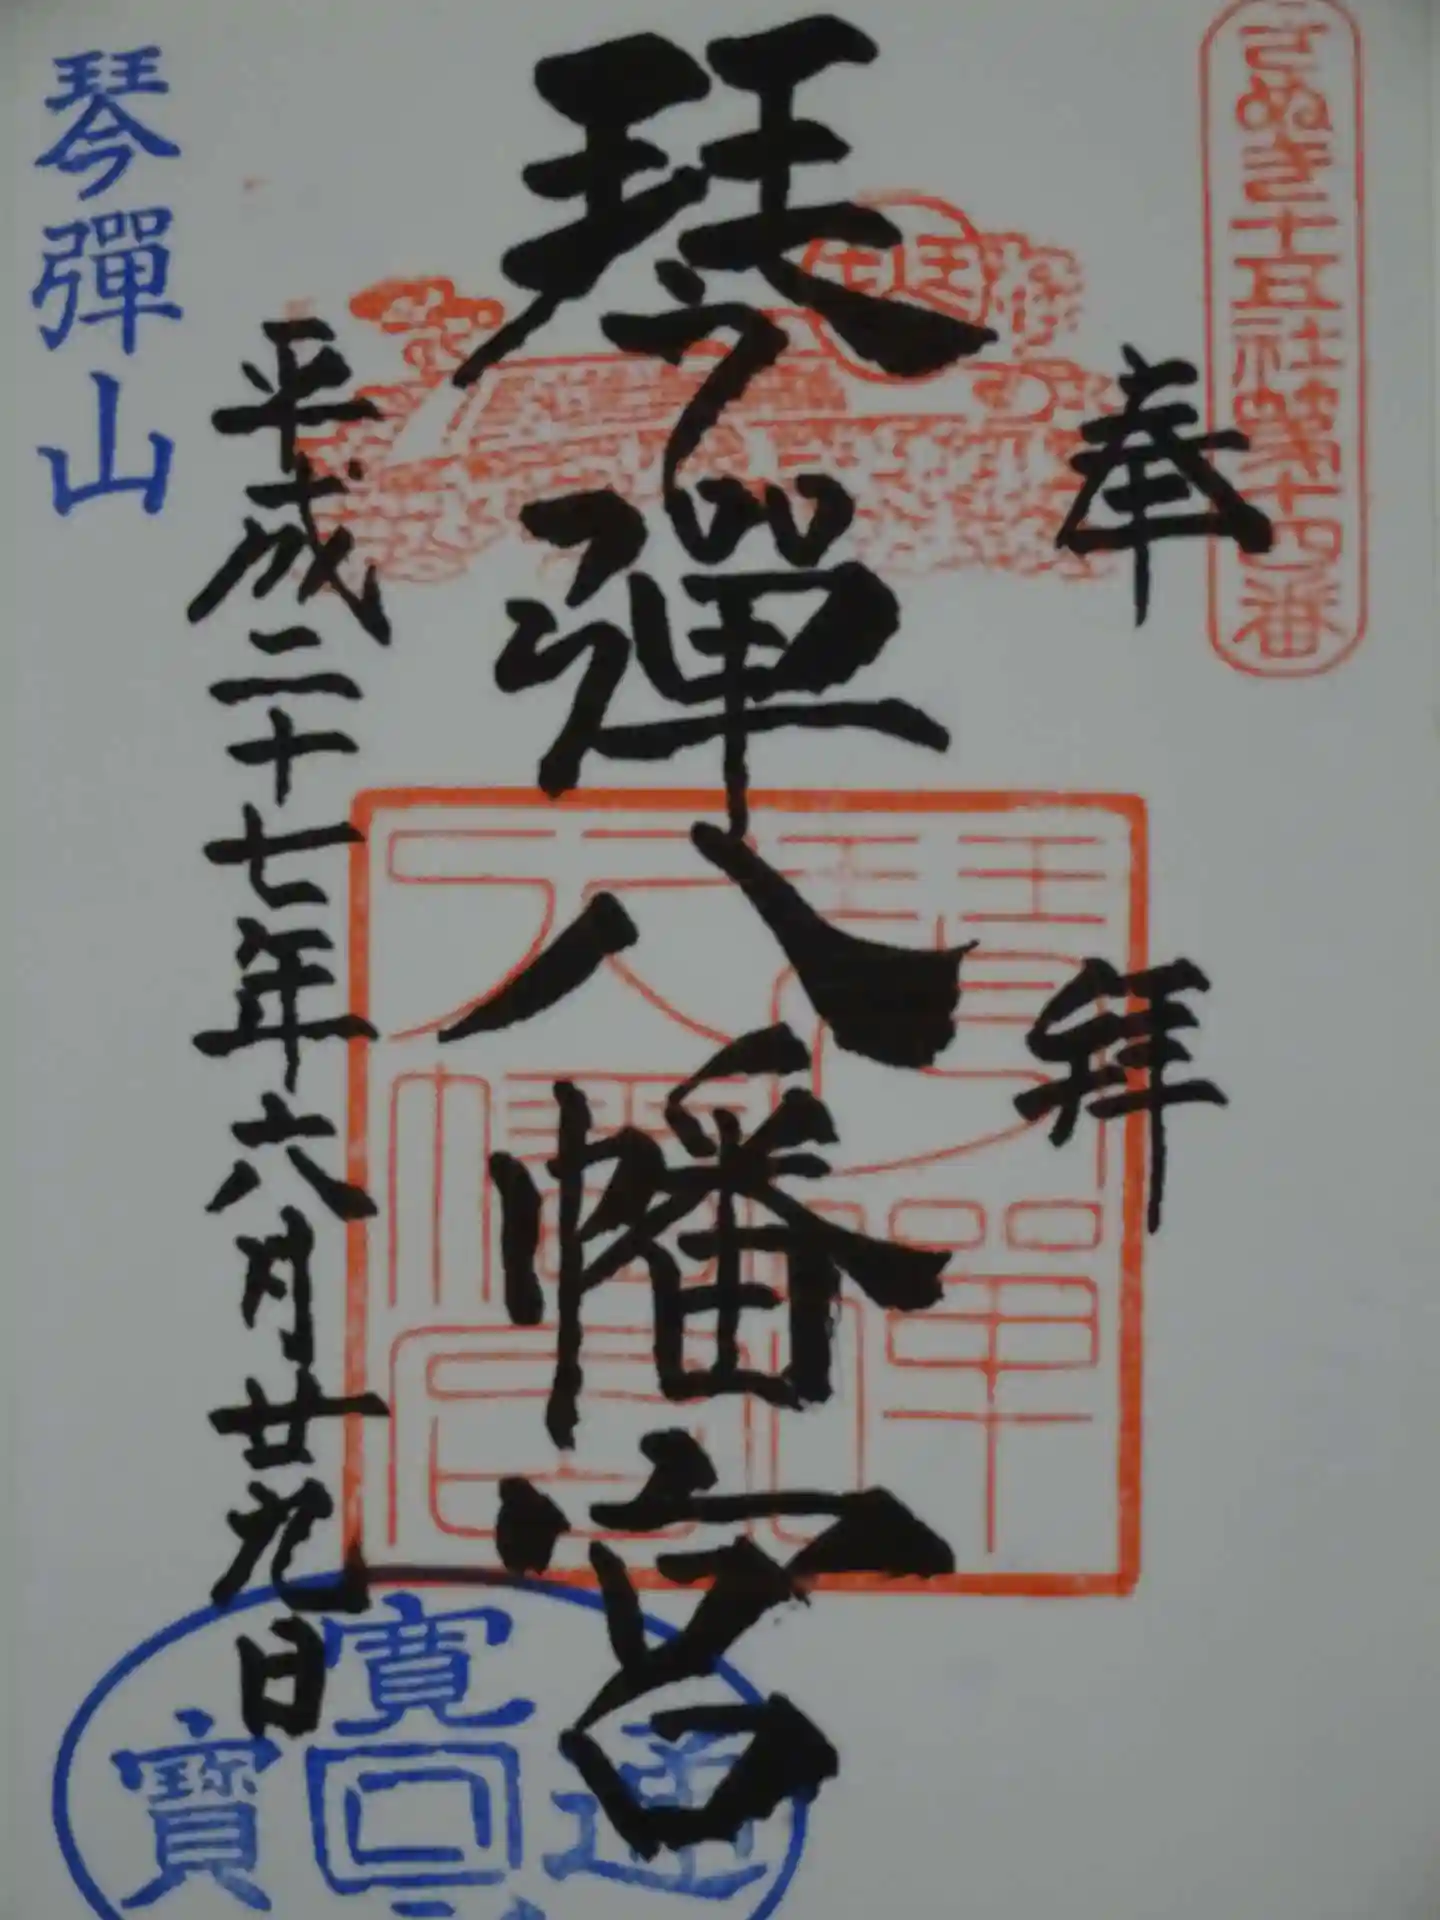 さぬき十五社第十四番
奉拝
琴彈八幡宮
平成二十七年六月廿九日
琴彈山
琴彈八幡宮
寛
通
寶